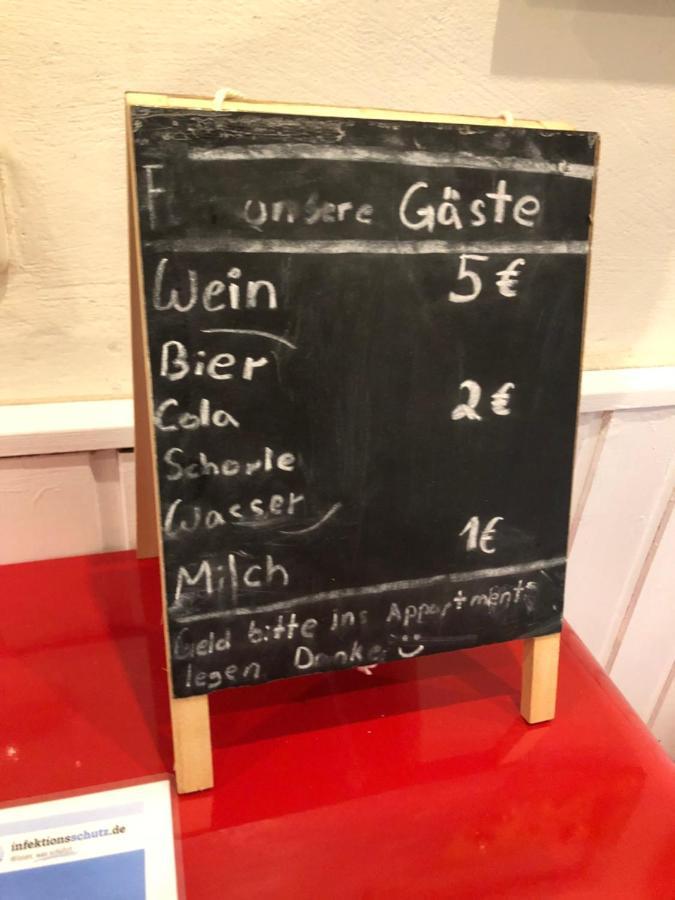 unsere Gäste
Wein 5 €
Bier
Cola 2 €
Schorle
Wasser
Milch 1 €
Geld bitte ins Appartment
legen. Danke
infektionsschutz.de